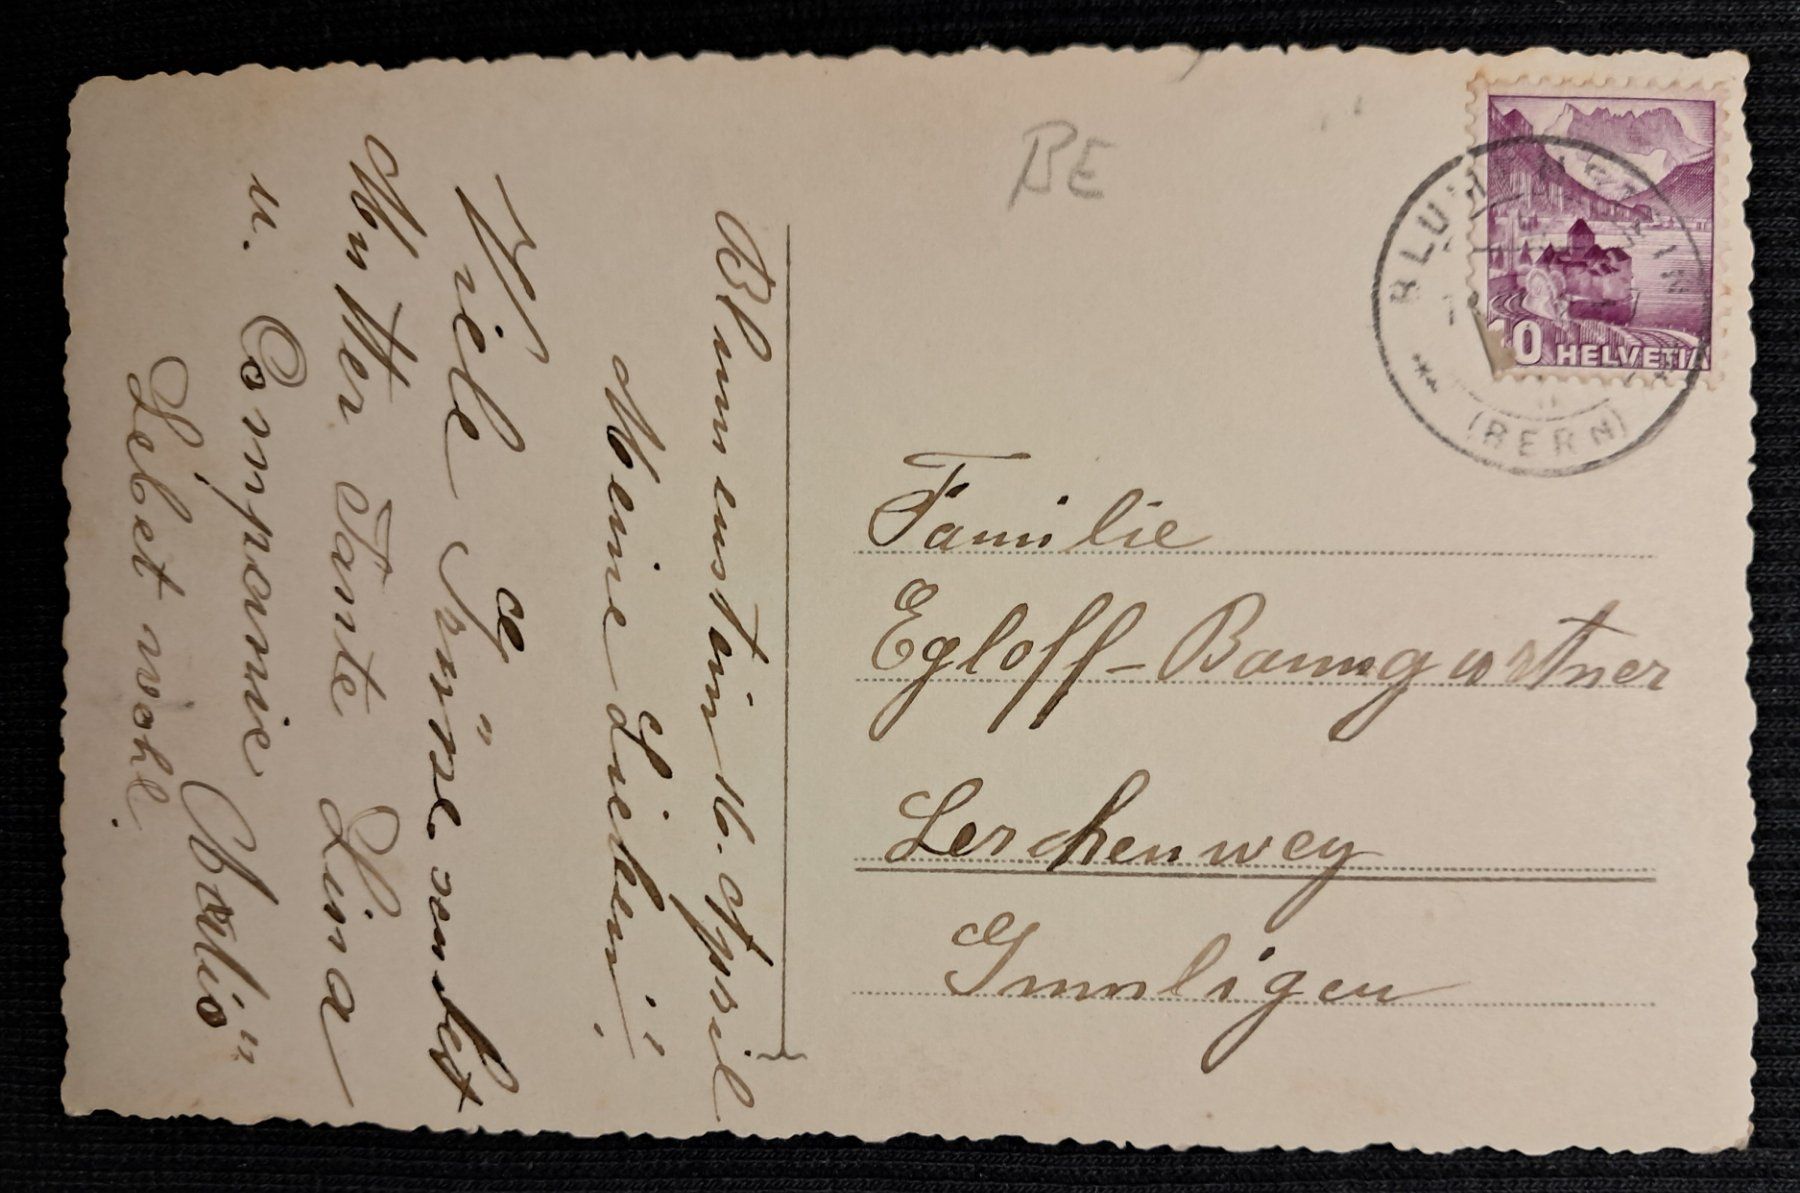 Blumenstein 16. April
Meine Lieben!
Viele Grüsse sendet
Mutter Tante Lina
u. Compagnie
Lebet wohl.
BE
BLUMENSTEIN
(BERN)
10 HELVETIA
Familie
Egloff-Baumgartner
Lerchenweg
Jnnligen